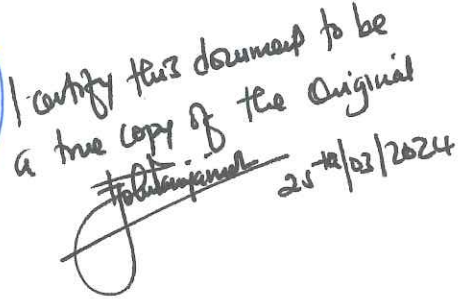 I certify this document to be
a true copy of the Original
25th/03/2024